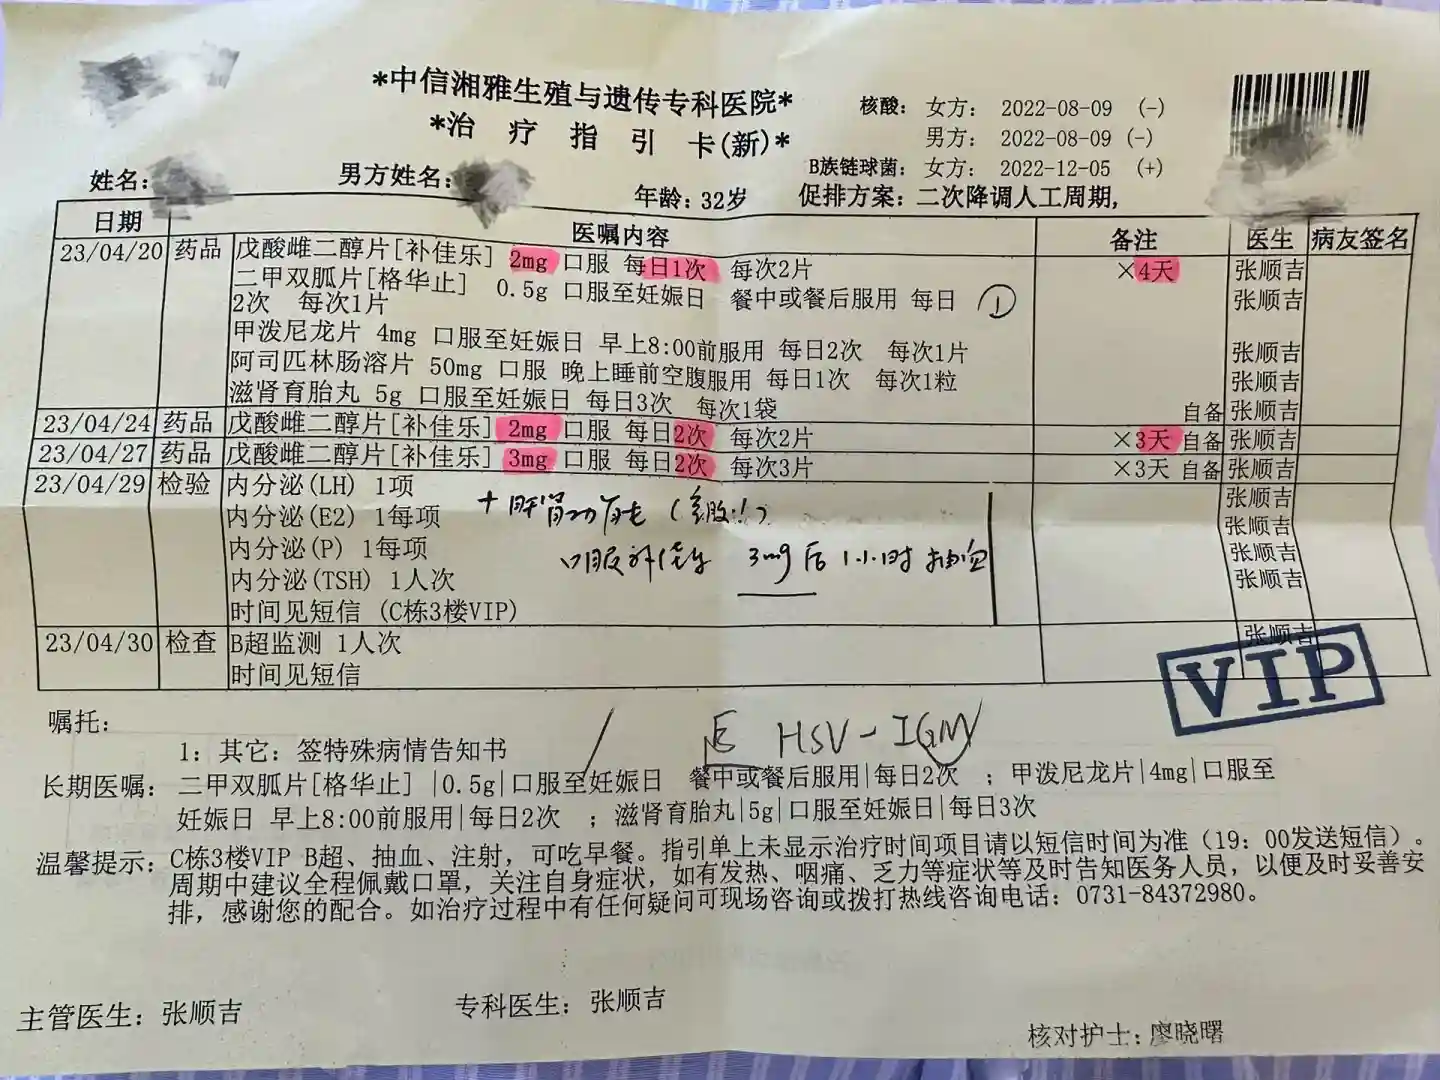 *中信湘雅生殖与遗传专科医院*
*治 疗 指 引 卡(新)*
核酸: 女方: 2022-08-09 (-)
男方: 2022-08-09 (-)
B族链球菌: 女方: 2022-12-05 (+)
姓名: 男方姓名: 年龄: 32岁 促排方案: 二次降调人工周期,
日期 医嘱内容 备注 医生 病友签名
23/04/20 药品 戊酸雌二醇片[补佳乐] 2mg 口服 每日1次 每次2片 ×4天 张顺吉
二甲双胍片[格华止] 0.5g 口服至妊娠日 餐中或餐后服用 每日 ① 张顺吉
2次 每次1片
甲泼尼龙片 4mg 口服至妊娠日 早上8:00前服用 每日2次 每次1片 张顺吉
阿司匹林肠溶片 50mg 口服 晚上睡前空腹服用 每日1次 每次1粒 张顺吉
滋肾育胎丸 5g 口服至妊娠日 每日3次 每次1袋 自备 张顺吉
23/04/24 药品 戊酸雌二醇片[补佳乐] 2mg 口服 每日2次 每次2片 ×3天 自备 张顺吉
23/04/27 药品 戊酸雌二醇片[补佳乐] 3mg 口服 每日2次 每次3片 ×3天 自备 张顺吉
23/04/29 检验 内分泌(LH) 1项 张顺吉
内分泌(E2) 1每项 + 肝肾功能 张顺吉
内分泌(P) 1每项 口服补佳乐 3mg后1小时抽血 张顺吉
内分泌(TSH) 1人次 张顺吉
时间见短信 (C栋3楼VIP)
23/04/30 检查 B超监测 1人次 张顺吉
时间见短信
VIP
嘱托:
HSV-IGM
1: 其它: 签特殊病情告知书
长期医嘱: 二甲双胍片[格华止] |0.5g|口服至妊娠日 餐中或餐后服用|每日2次 ; 甲泼尼龙片|4mg|口服至
妊娠日 早上8:00前服用|每日2次 ; 滋肾育胎丸|5g|口服至妊娠日|每日3次
温馨提示: C栋3楼VIP B超、抽血、注射, 可吃早餐。指引单上未显示治疗时间项目请以短信时间为准 (19: 00发送短信) 。
周期中建议全程佩戴口罩, 关注自身症状, 如有发热、咽痛、乏力等症状等及时告知医务人员, 以便及时妥善安
排, 感谢您的配合。如治疗过程中有任何疑问可现场咨询或拨打热线咨询电话: 0731-84372980。
主管医生: 张顺吉 专科医生: 张顺吉 核对护士: 廖晓曙